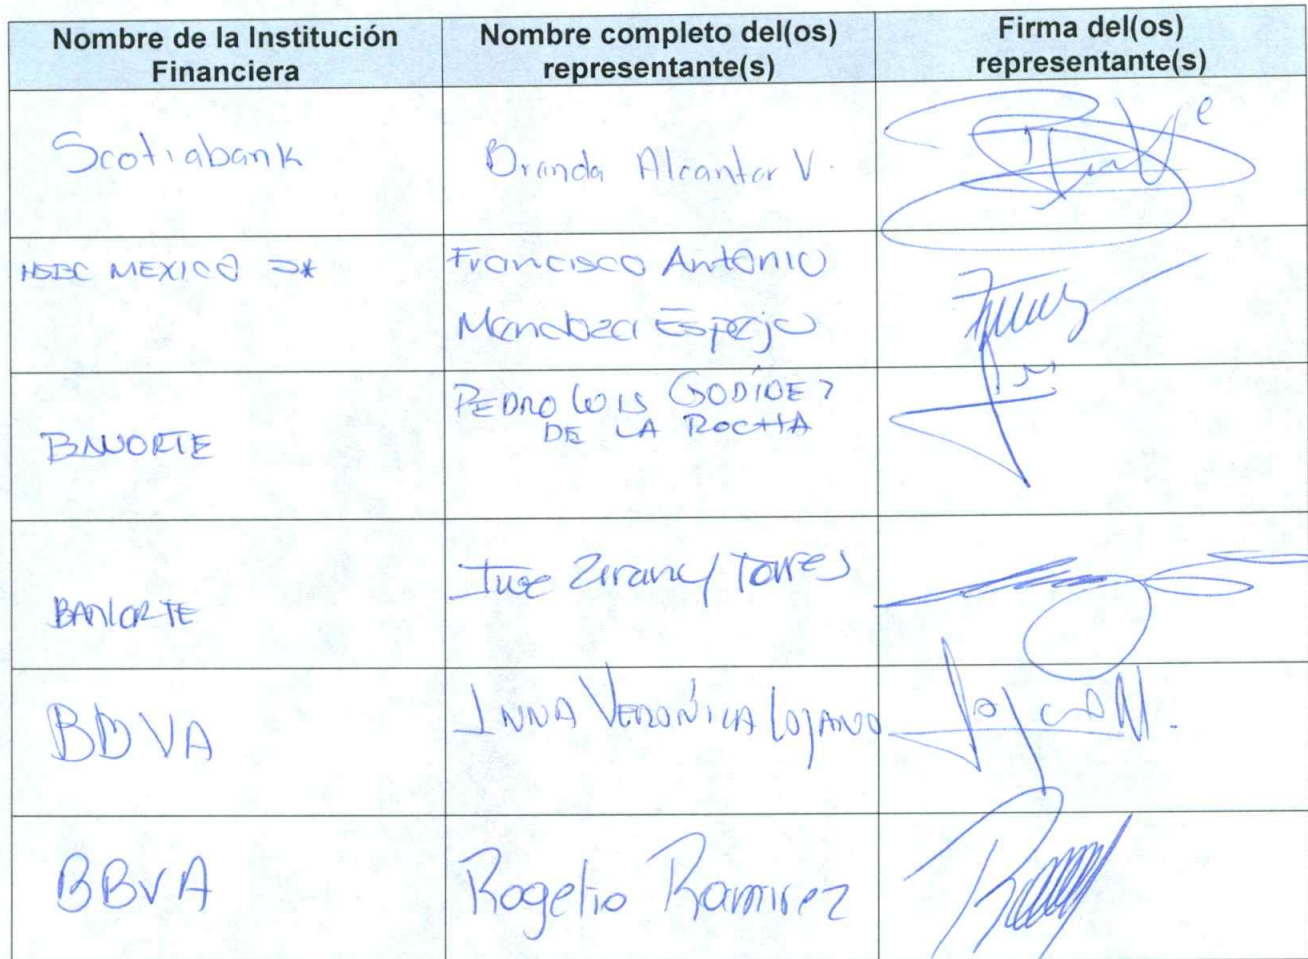 Nombre de la Institución
Financiera
Nombre completo del(os)
representante(s)
Firma del(os)
representante(s)
Scotiabank
Brenda Alcantar V.
HSBC MEXICO
Francisco Antonio
Mendoza Espejo
BANORTE
PEDRO LUIS GODÍNEZ
DE LA ROCHA
BANORTE
Torres
BBVA
VERÓNICA LOZANO
BBVA
Rogelio Ramirez